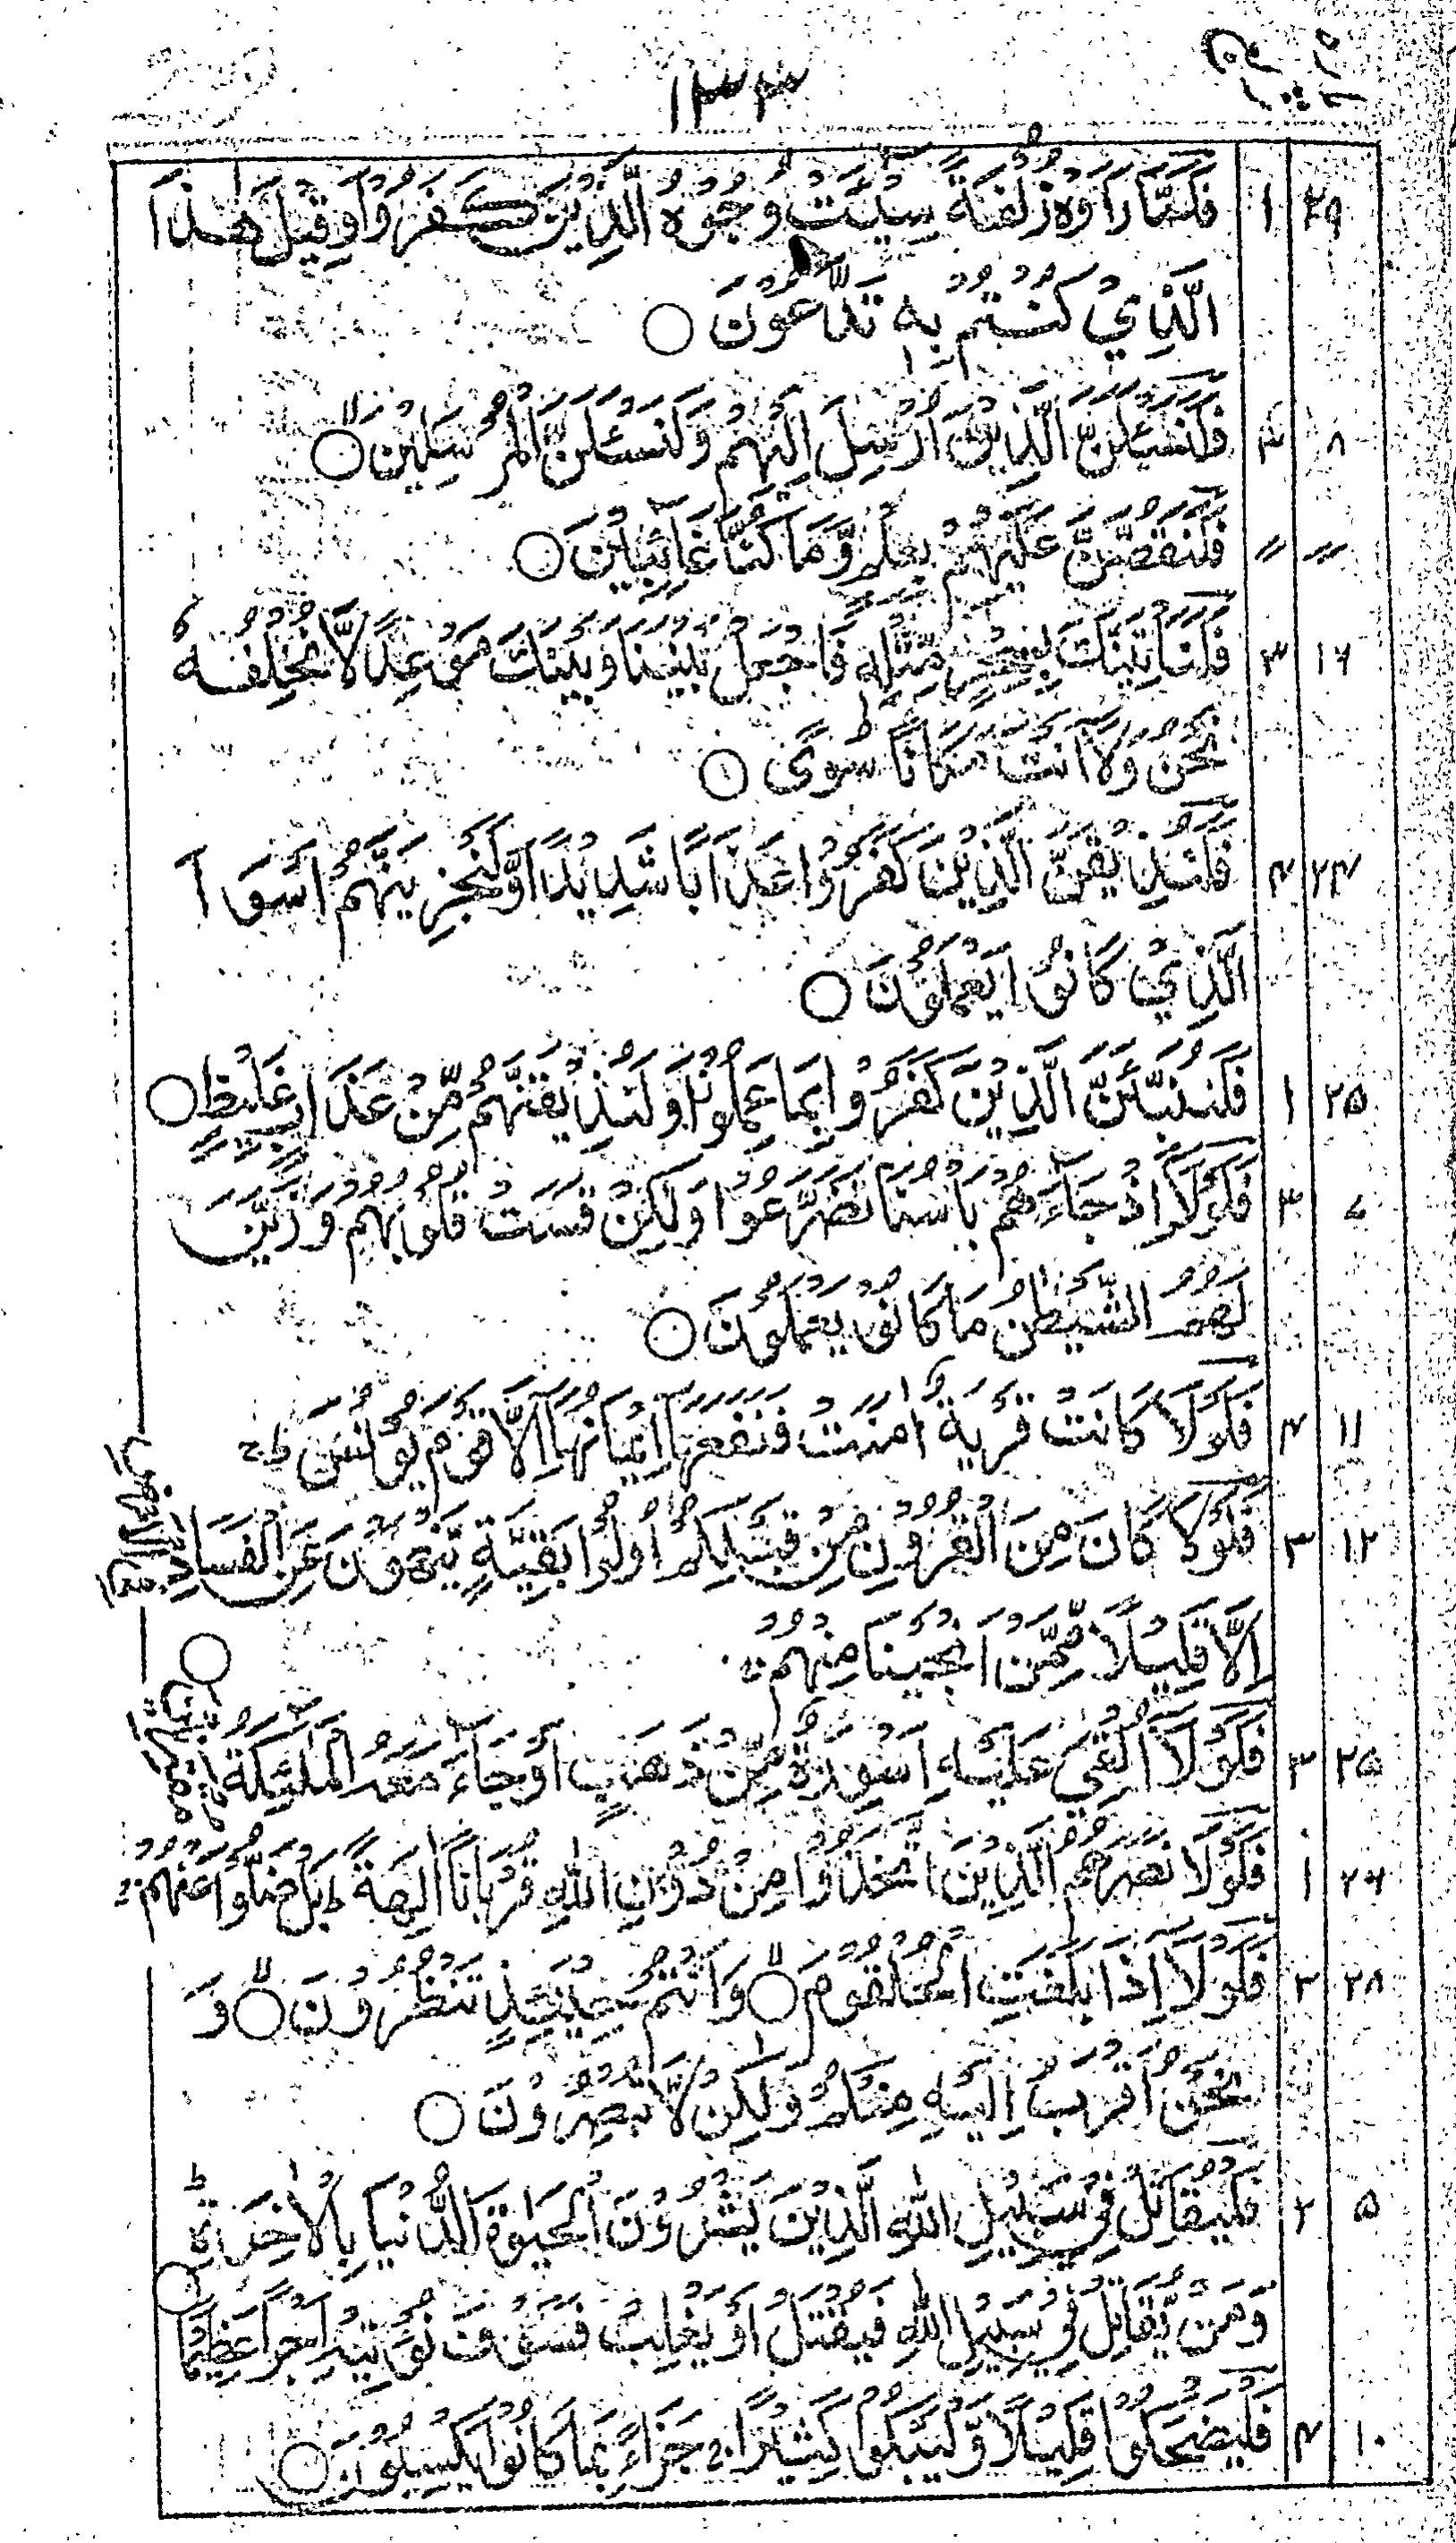 ۱۳۳
۲۹ ۱ فَلَمَّا رَاَوْهُ زُلْفَةً سِيْٓـَٔتْ وُجُوْهُ الَّذِيْنَ كَفَرُوْا وَقِيْلَ هٰذَا
الَّذِيْ كُنْتُمْ بِهٖ تَدَّعُوْنَ ○
۸ ۳ فَلَنَسْـَٔلَنَّ الَّذِيْنَ اُرْسِلَ اِلَيْهِمْ وَلَنَسْـَٔلَنَّ الْمُرْسَلِيْنَ ○
〃 〃 فَلَنَقُصَّنَّ عَلَيْهِمْ بِعِلْمٍ وَّمَا كُنَّا غَآئِبِيْنَ ○
۱۶ ۳ فَلَنَاْتِيَنَّكَ بِسِحْرٍ مِّثْلِهٖ فَاجْعَلْ بَيْنَنَا وَبَيْنَكَ مَوْعِدًا لَّا نُخْلِفُهٗ
نَحْنُ وَلَآ اَنْتَ مَكَانًا سُوًى ○
۲۴ ۴ فَلَنُذِيْقَنَّ الَّذِيْنَ كَفَرُوْا عَذَابًا شَدِيْدًا وَّلَنَجْزِيَنَّهُمْ اَسْوَاَ
الَّذِيْ كَانُوْا يَعْمَلُوْنَ ○
۲۵ ۱ فَلَنُنَبِّئَنَّ الَّذِيْنَ كَفَرُوْا بِمَا عَمِلُوْا وَلَنُذِيْقَنَّهُمْ مِّنْ عَذَابٍ غَلِيْظٍ ○
۷ ۳ فَلَوْلَآ اِذْ جَآءَهُمْ بَاْسُنَا تَضَرَّعُوْا وَلٰكِنْ قَسَتْ قُلُوْبُهُمْ وَزَيَّنَ
لَهُمُ الشَّيْطٰنُ مَا كَانُوْا يَعْمَلُوْنَ ○
۱۱ ۴ فَلَوْلَا كَانَتْ قَرْيَةٌ اٰمَنَتْ فَنَفَعَهَآ اِيْمَانُهَآ اِلَّا قَوْمَ يُوْنُسَ ط
۱۲ ۳ فَلَوْلَا كَانَ مِنَ الْقُرُوْنِ مِنْ قَبْلِكُمْ اُولُوْا بَقِيَّةٍ يَّنْهَوْنَ عَنِ الْفَسَادِ فِي الْاَرْضِ
اِلَّا قَلِيْلًا مِّمَّنْ اَنْجَيْنَا مِنْهُمْ ج
○
۲۵ ۳ فَلَوْلَآ اُلْقِيَ عَلَيْهِ اَسْوِرَةٌ مِّنْ ذَهَبٍ اَوْ جَآءَ مَعَهُ الْمَلٰٓئِكَةُ مُقْتَرِنِيْنَ
۲۶ ۱ فَلَوْلَا نَصَرَهُمُ الَّذِيْنَ اتَّخَذُوْا مِنْ دُوْنِ اللّٰهِ قُرْبَانًا اٰلِهَةً ط بَلْ ضَلُّوْا عَنْهُمْ ج
۲۸ ۳ فَلَوْلَآ اِذَا بَلَغَتِ الْحُلْقُوْمَ ○ وَاَنْتُمْ حِيْنَئِذٍ تَنْظُرُوْنَ ○ وَ
نَحْنُ اَقْرَبُ اِلَيْهِ مِنْكُمْ وَلٰكِنْ لَّا تُبْصِرُوْنَ ○
۵ ۲ فَلْيُقَاتِلْ فِيْ سَبِيْلِ اللّٰهِ الَّذِيْنَ يَشْرُوْنَ الْحَيٰوةَ الدُّنْيَا بِالْاٰخِرَةِ ط
وَمَنْ يُّقَاتِلْ فِيْ سَبِيْلِ اللّٰهِ فَيُقْتَلْ اَوْ يَغْلِبْ فَسَوْفَ نُؤْتِيْهِ اَجْرًا عَظِيْمًا ○
۱۰ ۴ فَلْيَضْحَكُوْا قَلِيْلًا وَّلْيَبْكُوْا كَثِيْرًا ج جَزَآءً بِمَا كَانُوْا يَكْسِبُوْنَ ○